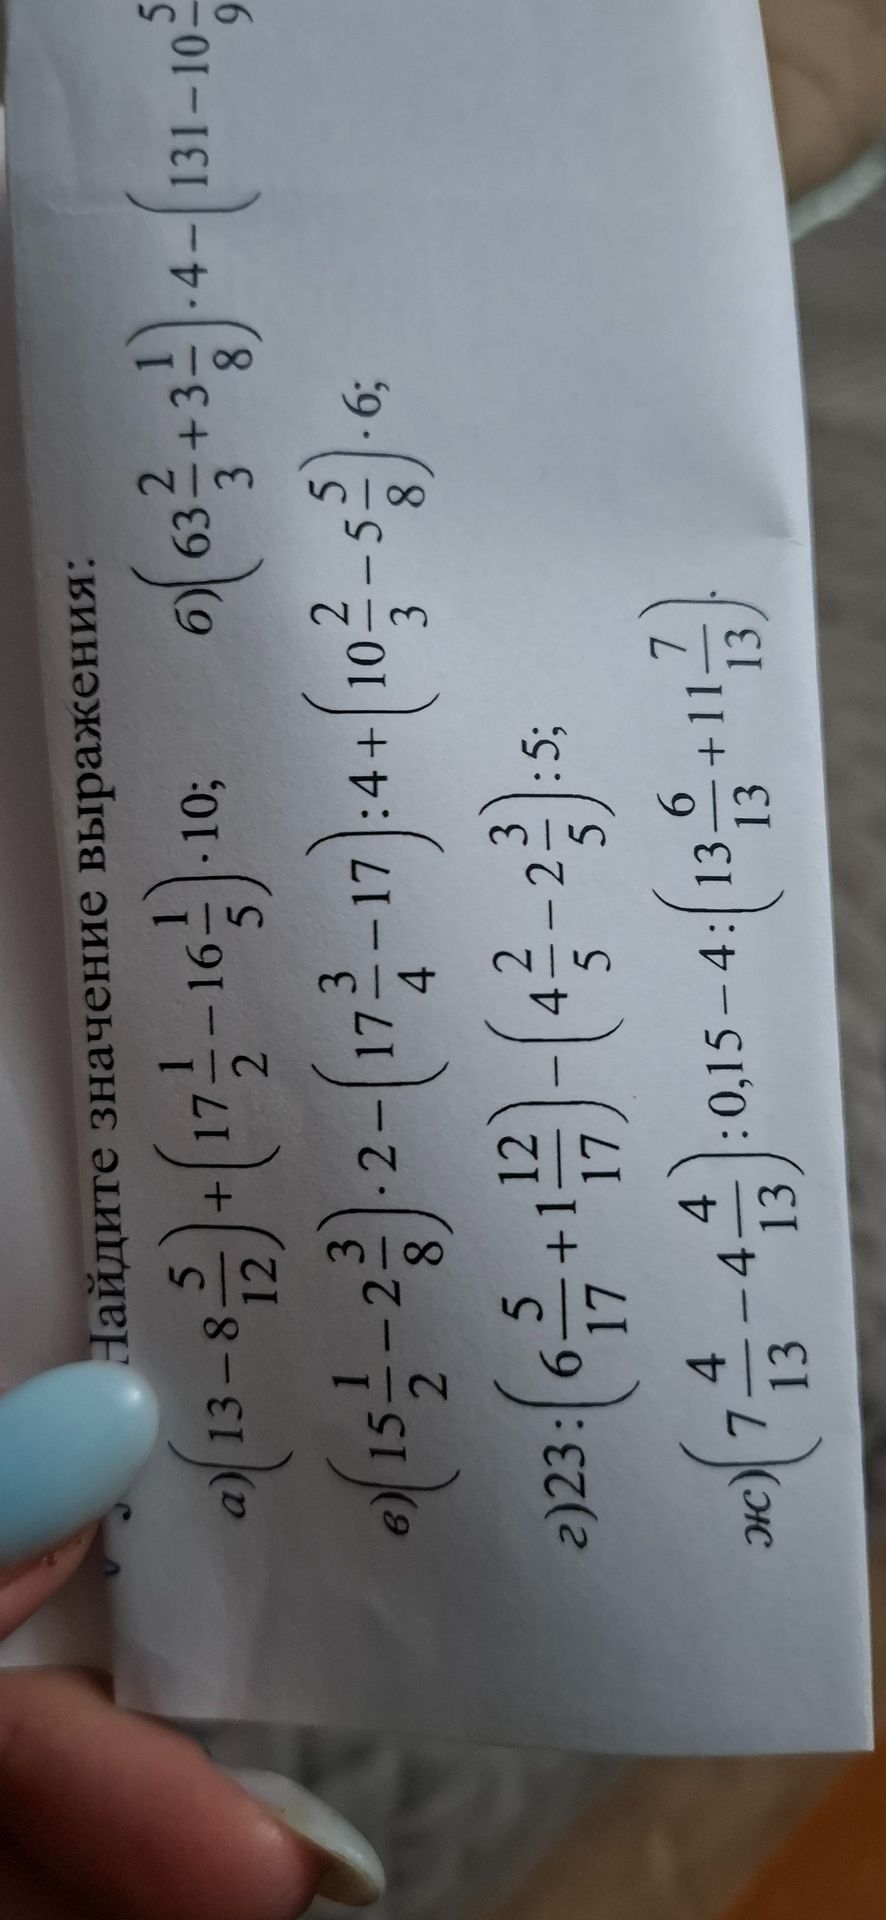 Найдите значение выражения:
а)(13−8 5/12)+(17 1/2−16 1/5)·10; б)(63 2/3+3 1/8)·4−(131−10 5/9
в)(15 1/2−2 3/8)·2−(17 3/4−17):4+(10 2/3−5 5/8)·6;
г)23:(6 5/17+1 12/17)−(4 2/5−2 3/5):5;
ж)(7 4/13−4 4/13):0,15−4:(13 6/13+11 7/13).